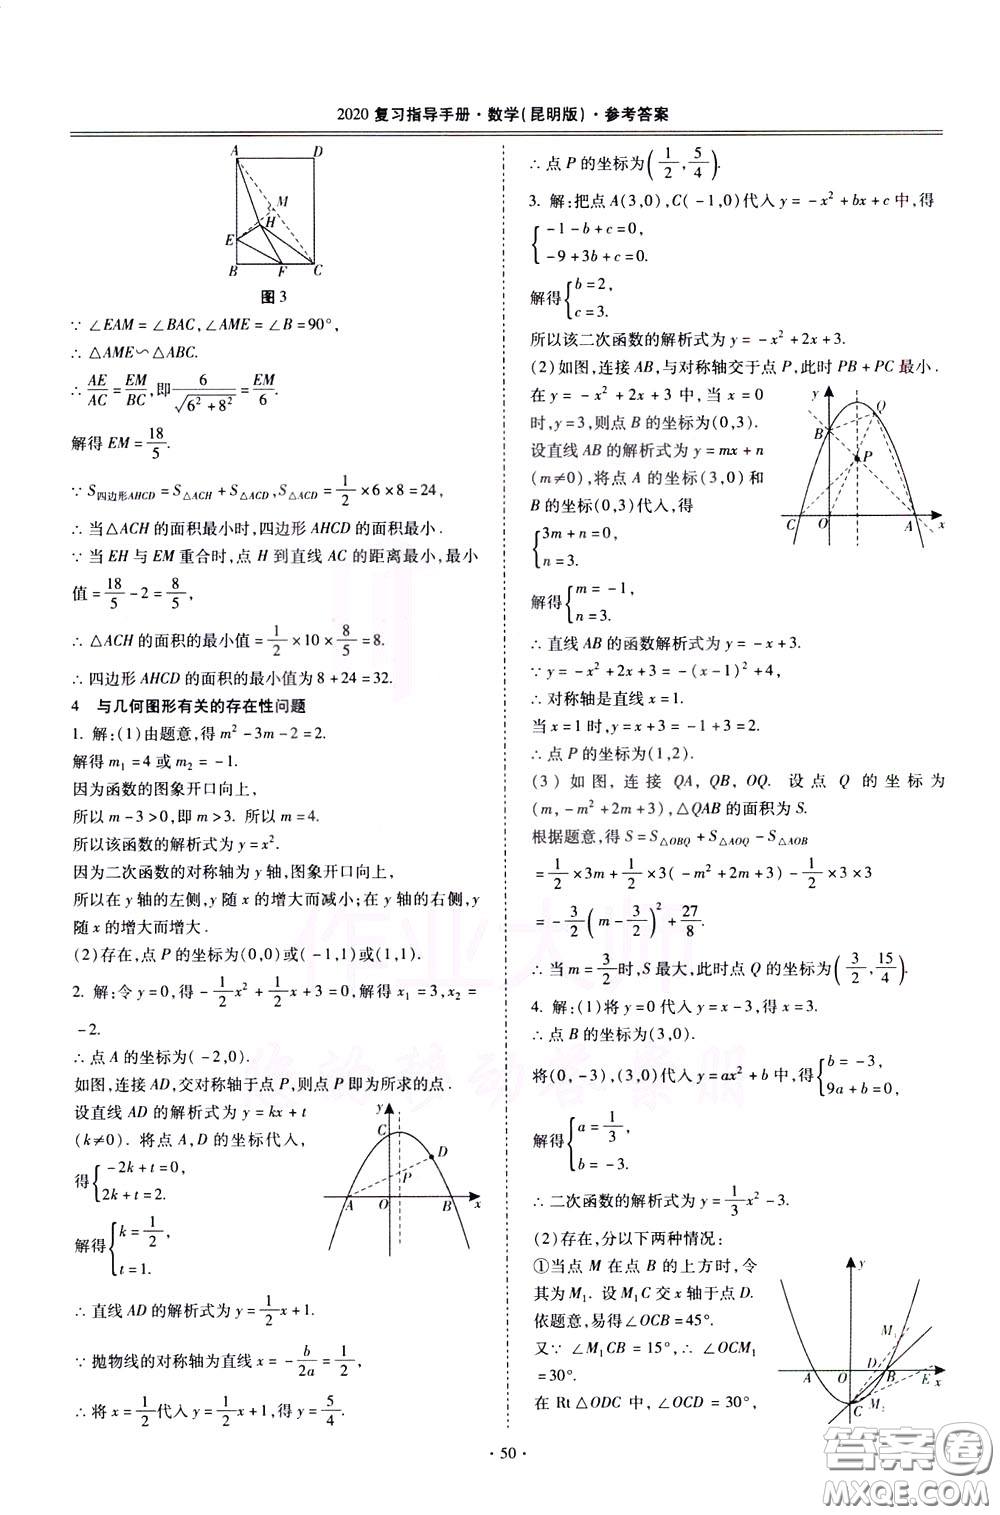 2020 复习指导手册·数学(昆明版)·参考答案
A D
M
H
E
B F C
图 3
∵ ∠EAM = ∠BAC, ∠AME = ∠B = 90°,
∴ △AME∽△ABC.
∴ AE/AC = EM/BC, 即 6/√(6²+8²) = EM/6.
解得 EM = 18/5.
∵ S四边形AHCD = S△ACH + S△ACD, S△ACD = 1/2 ×6×8 = 24,
∴ 当△ACH 的面积最小时,四边形 AHCD 的面积最小.
∵ 当 EH 与 EM 重合时,点 H 到直线 AC 的距离最小,最小
值 = 18/5 - 2 = 8/5,
∴ △ACH 的面积的最小值 = 1/2 ×10× 8/5 = 8.
∴ 四边形 AHCD 的面积的最小值为 8 + 24 = 32.
4 与几何图形有关的存在性问题
1. 解:(1)由题意,得 m² - 3m - 2 = 2.
解得 m₁ = 4 或 m₂ = -1.
因为函数的图象开口向上,
所以 m - 3 > 0,即 m > 3. 所以 m = 4.
所以该函数的解析式为 y = x².
因为二次函数的对称轴为 y 轴,图象开口向上,
所以在 y 轴的左侧,y 随 x 的增大而减小;在 y 轴的右侧,y
随 x 的增大而增大.
(2)存在,点 P 的坐标为(0,0)或(-1,1)或(1,1).
2. 解:令 y = 0,得 - 1/2 x² + 1/2 x + 3 = 0,解得 x₁ = 3, x₂ =
-2.
∴ 点 A 的坐标为(-2,0).
如图,连接 AD,交对称轴于点 P,则点 P 即为所求的点.
设直线 AD 的解析式为 y = kx + t
(k≠0). 将点 A,D 的坐标代入,
得{ -2k + t = 0,
2k + t = 2.
解得{ k = 1/2,
t = 1.
y
C
D
P
A O B x
∴ 直线 AD 的解析式为 y = 1/2 x + 1.
∵ 抛物线的对称轴为直线 x = - b/2a = 1/2,
∴ 将 x = 1/2 代入 y = 1/2 x + 1,得 y = 5/4.
∴ 点 P 的坐标为(1/2, 5/4).
3. 解:把点 A(3,0),C(-1,0)代入 y = -x² + bx + c 中,得
{ -1 - b + c = 0,
-9 + 3b + c = 0.
解得{ b = 2,
c = 3.
所以该二次函数的解析式为 y = -x² + 2x + 3.
(2)如图,连接 AB,与对称轴交于点 P,此时 PB + PC 最小.
在 y = -x² + 2x + 3 中,当 x = 0
时,y = 3,则点 B 的坐标为(0,3).
设直线 AB 的解析式为 y = mx + n
(m≠0),将点 A 的坐标(3,0)和
B 的坐标(0,3)代入,得
{ 3m + n = 0,
n = 3.
解得{ m = -1,
n = 3.
y
Q
B
P
C O A x
∴ 直线 AB 的函数解析式为 y = -x + 3.
∵ y = -x² + 2x + 3 = -(x - 1)² + 4,
∴ 对称轴是直线 x = 1.
当 x = 1 时,y = -x + 3 = -1 + 3 = 2.
∴ 点 P 的坐标为(1,2).
(3) 如图,连接 QA, QB, OQ. 设点 Q 的坐标为
(m, -m² + 2m + 3),△QAB 的面积为 S.
根据题意,得 S = S△OBQ + S△AOQ - S△AOB
= 1/2 ×3m + 1/2 ×3(-m² + 2m + 3) - 1/2 ×3×3
= - 3/2 (m - 3/2)² + 27/8.
∴ 当 m = 3/2 时,S 最大,此时点 Q 的坐标为(3/2, 15/4).
4. 解:(1)将 y = 0 代入 y = x - 3,得 x = 3.
∴ 点 B 的坐标为(3,0).
将(0,-3),(3,0)代入 y = ax² + b 中,得{ b = -3,
9a + b = 0.
解得{ a = 1/3,
b = -3.
∴ 二次函数的解析式为 y = 1/3 x² - 3.
(2)存在,分以下两种情况:
①当点 M 在点 B 的上方时,令
其为 M₁. 设 M₁C 交 x 轴于点 D.
依题意,易得∠OCB = 45°.
又∵ ∠M₁CB = 15°,∴ ∠OCM₁
= 30°.
在 Rt△ODC 中,∠OCD = 30°,
y
M₁
D
A O B E x
C M₂
· 50 ·
作业大师
答案圈
MXQE.COM